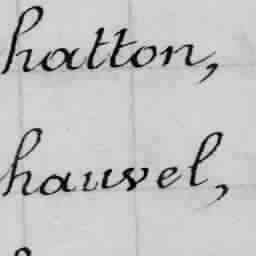 hatton,
hauvel,